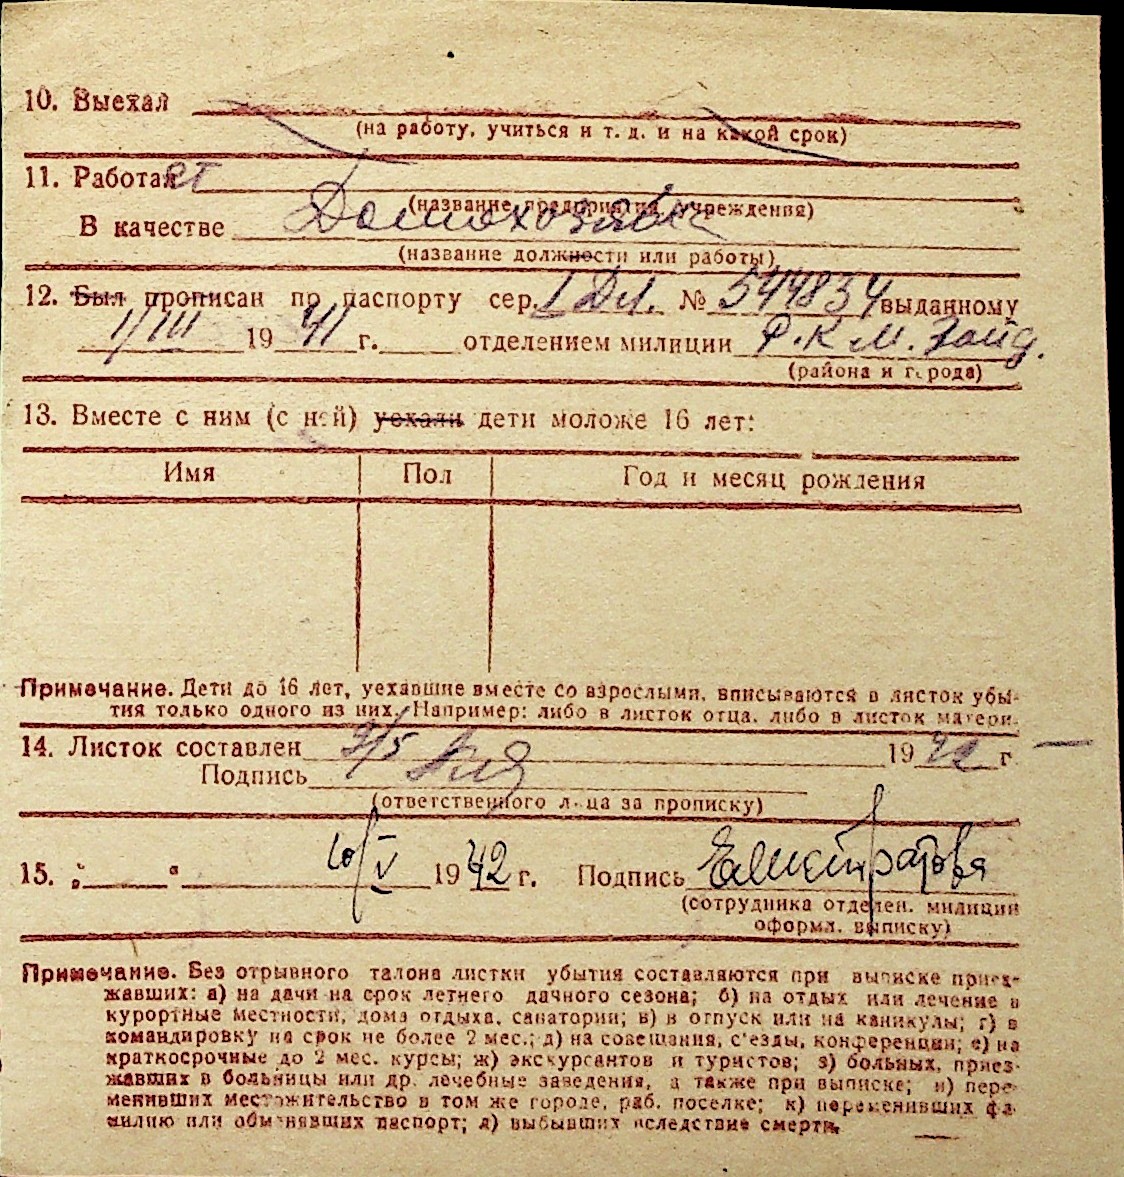 10. Выехал
(на работу, учиться и т. д. и на какой срок)
11. Работает
(название предприятия, учреждения)
В качестве Домохозяйка
(название должности или работы)
12. Был прописан по паспорту сер. № 544834 выданному
1/III 19 41 г. отделением милиции Р.К.М.
(района и города)
13. Вместе с ним (с ней) уехали дети моложе 16 лет:
Имя Пол Год и месяц рождения
Примечание. Дети до 16 лет, уехавшие вместе со взрослыми, вписываются в листок убы-
тия только одного из них. Например: либо в листок отца, либо в листок матери.
14. Листок составлен 9/5 19 42 г
Подпись
(ответственного лица за прописку)
15. „ “ 10/V 19 42 г. Подпись Елистратова
(сотрудника отделен. милиции
оформл. выписку)
Примечание. Без отрывного талона листки убытия составляются при выписке приез-
жавших: а) на дачи на срок летнего дачного сезона; б) на отдых или лечение в
курортные местности, дома отдыха, санатории; в) в отпуск или на каникулы; г) в
командировку на срок не более 2 мес.; д) на совещания, с'езды, конференции; е) на
краткосрочные до 2 мес. курсы; ж) экскурсантов и туристов; з) больных, приез-
жавших в больницы или др. лечебные заведения, а также при выписке; и) пере-
менивших местожительство в том же городе, раб. поселке; к) переменивших фа-
милию или обменявших паспорт; л) выбывших вследствие смерти.